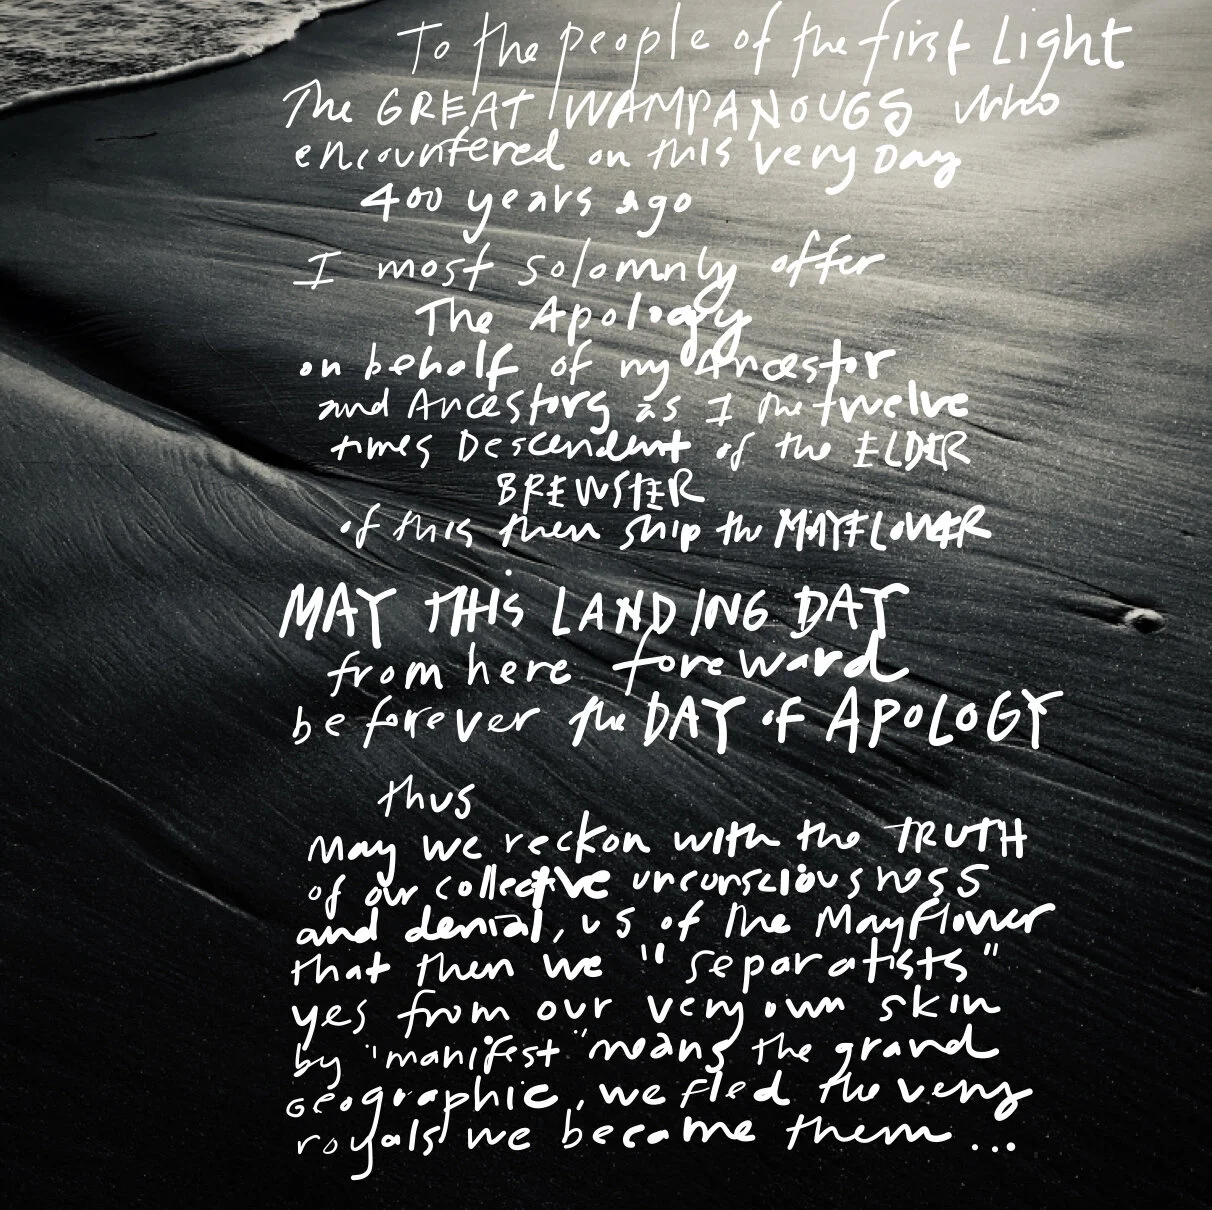 To the people of the first Light
The GREAT WAMPANOUGS who
encountered on this very Day
400 years ago
I most solomnly offer
The Apology
on behalf of my Ancestor
and Ancestors as I the twelve
times Descendent of the ELDER
BREWSTER
of this then ship the MAYFLOWER
MAY THIS LANDING DAY
from here foreward
be forever the DAY of APOLOGY
thus
May we reckon with the TRUTH
of our collective unconsciousness
and denial, us of the Mayflower
that then we "separatists"
yes from our very own skin
by "manifest" means the grand
geographic, we fled the very
royals we became them...